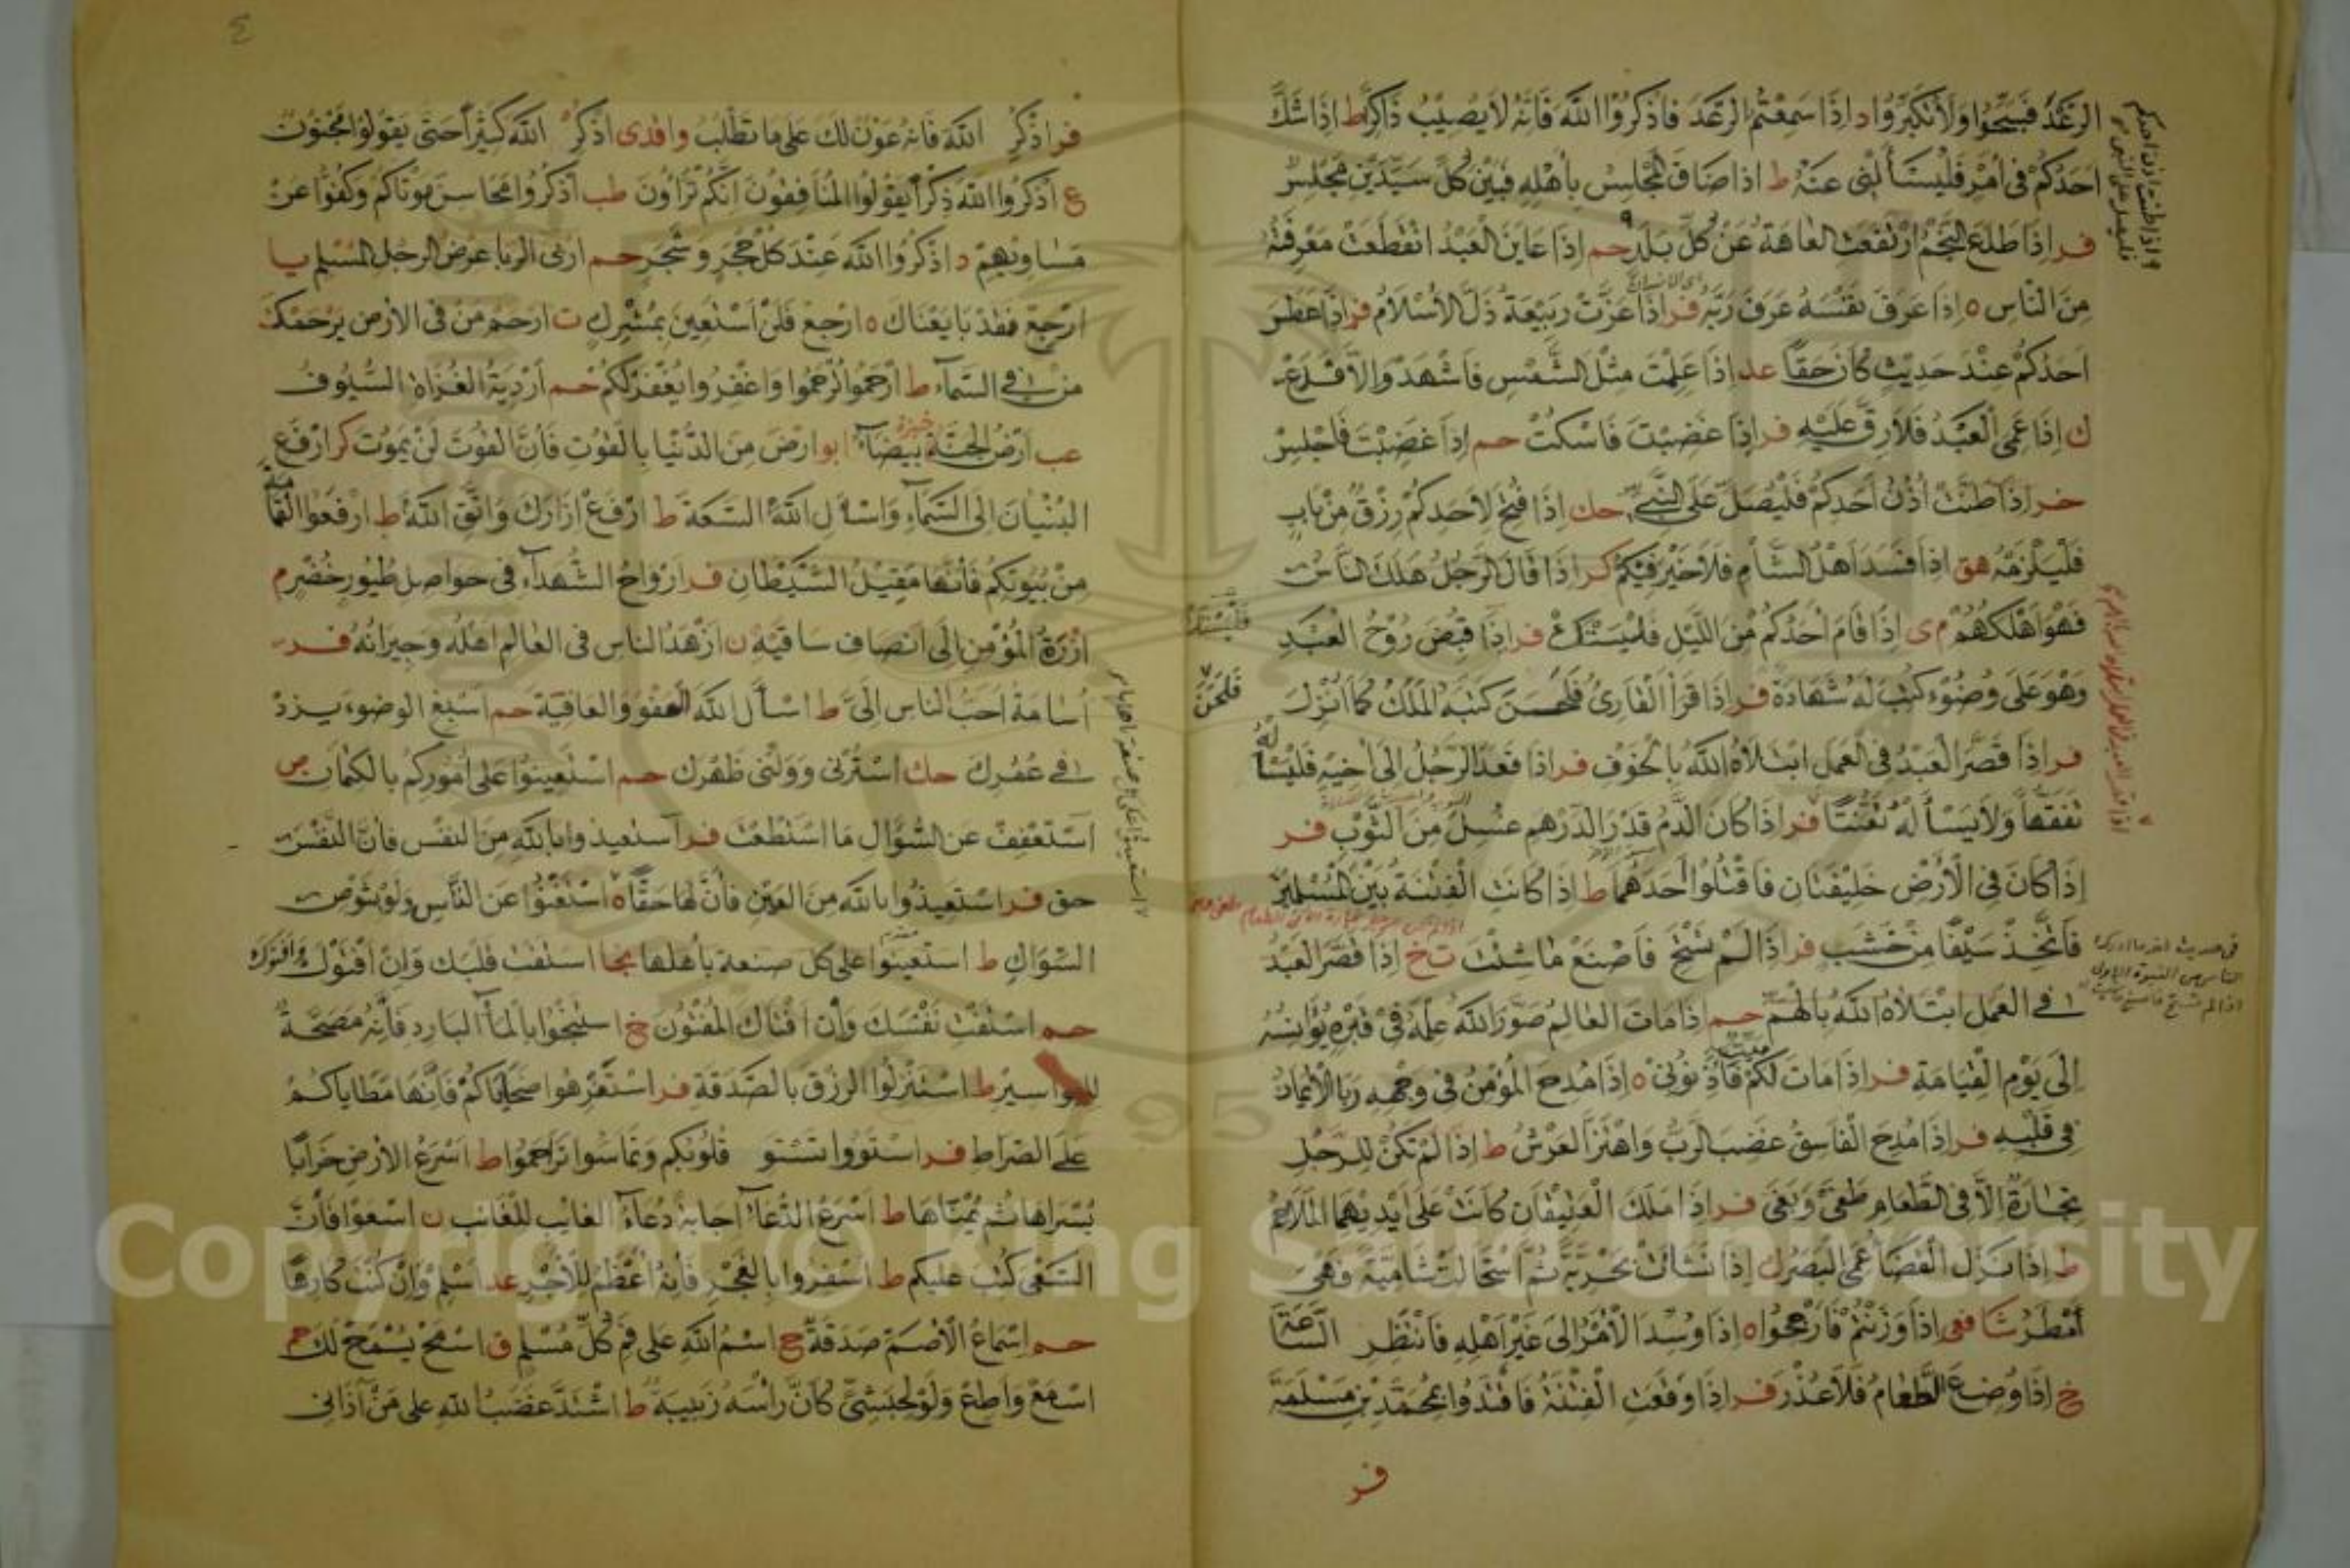 الرَّعْدَ فَسَبِّحُوا وَلَا تُكَبِّرُوا د إِذَا سَمِعْتُمُ الرَّعْدَ فَاذْكُرُوا اللَّهَ فَإِنَّهُ لَا يُصِيبُ ذَاكِرًا ط إِذَا شَكَّ
أَحَدُكُمْ فِي أَمْرٍ فَلْيَسْأَلْنِي عَنْهُ ط اذا ضاق المجلس بِأَهْلِهِ فَبَيْنَ كُلِّ سَيِّدَيْنِ مَجْلِسٌ
فر إِذَا طَلَعَ النَّجْمُ ارْتَفَعَتِ العَاهَةُ عَنْ كُلِّ بَلَدٍ حم إِذَا عَايَنَ الْعَبْدُ انْقَطَعَتْ مَعْرِفَتُهُ
مِنَ النَّاسِ ه إِذَا عَرَفَ نَفْسَهُ عَرَفَ رَبَّهُ فر إِذَا عَزَّتْ رَبِيعَةُ ذَلَّ الْإِسْلَامُ فر إِذَا عَطَسَ
أَحَدُكُمْ عِنْدَ حَدِيثٍ كَانَ حَقًّا عد إِذَا عَلِمْتَ مِثْلَ الشَّمْسِ فَاشْهَدْ وَإِلَّا فَدَعْ
ك إِذَا عَمِيَ الْعَبْدُ فَلَا رِقَّ عَلَيْهِ فر إِذَا غَضِبْتَ فَاسْكُتْ حم إِذَا غَضِبْتَ فَاجْلِسْ
خر إِذَا طَنَّتْ أُذُنُ أَحَدِكُمْ فَلْيُصَلِّ عَلَى النَّبِيِّ حك إِذَا فُتِحَ لِأَحَدِكُمْ رِزْقٌ مِنْ بَابٍ
فَلْيَلْزَمْهُ هق إِذَا فَسَدَ أَهْلُ الشَّامِ فَلَا خَيْرَ فِيكُمْ كر إِذَا قَالَ الرَّجُلُ هَلَكَ النَّاسُ
فَهُوَ أَهْلَكُهُمْ م ى إِذَا قَامَ أَحَدُكُمْ مِنَ اللَّيْلِ فَلْيَسْتَكْ فر إِذَا قُبِضَ رُوحُ الْعَبْدِ
وَهُوَ عَلَى وُضُوءٍ كُتِبَ لَهُ شَهَادَةٌ فر إِذَا قَرَأَ الْقَارِئُ فَلَحَنَ كَتَبَهُ الْمَلَكُ كَمَا أُنْزِلَ
فر إِذَا قَصَّرَ الْعَبْدُ فِي الْعَمَلِ ابْتَلَاهُ اللَّهُ بِالْخَوْفِ فر إِذَا قَعَدَ الرَّجُلُ إِلَى أَخِيهِ فَلْيَسْأَلْهُ
تَفَقُّهًا وَلَا يَسْأَلْهُ تَعَنُّتًا فر إِذَا كَانَ الدَّمُ قَدْرَ الدِّرْهَمِ غُسِلَ مِنَ الثَّوْبِ فر
إِذَا كَانَ فِي الْأَرْضِ خَلِيفَتَانِ فَاقْتُلُوا أَحَدَهُمَا ط إِذَا كَانَتِ الْفِتْنَةُ بَيْنَ الْمُسْلِمِينَ
فَاتَّخِذْ سَيْفًا مِنْ خَشَبٍ فر إِذَا لَمْ تَسْتَحِ فَاصْنَعْ مَا شِئْتَ تخ إِذَا قَصَّرَ الْعَبْدُ
فِي الْعَمَلِ ابْتَلَاهُ اللَّهُ بِالْهَمِّ حم إِذَا مَاتَ الْعَالِمُ صَوَّرَ اللَّهُ عِلْمَهُ فِي قَبْرِهِ يُؤْنِسُهُ
إِلَى يَوْمِ الْقِيَامَةِ فر إِذَا مَاتَ لَكُمْ مَيِّتٌ فَآذِنُونِي ه إِذَا مُدِحَ الْمُؤْمِنُ فِي وَجْهِهِ رَبَا الْإِيمَانُ
فِي قَلْبِهِ فر إِذَا مُدِحَ الْفَاسِقُ غَضِبَ الرَّبُّ وَاهْتَزَّ الْعَرْشُ ط إِذَا لَمْ تَكُنْ لِلرَّجُلِ
تِجَارَةٌ إِلَّا فِي الطَّعَامِ طَغَى وَبَغَى فر إِذَا مَلَكَ الْعَتِيقَانِ كَانَتْ عَلَى أَيْدِيهِمَا الْمَلَاحِمُ
ط إِذَا نَزَلَ الْقَضَا عَمِيَ الْبَصَرُ ك إِذَا نَشَأَتْ بَحْرِيَّةً ثُمَّ اسْتَحَالَتْ شَامِيَّةً فَهِيَ
أَمْطَرُ شافعى إِذَا وَزَنْتُمْ فَأَرْجِحُوا ه إِذَا وُسِّدَ الْأَمْرُ إِلَى غَيْرِ أَهْلِهِ فَانْتَظِرِ السَّاعَةَ
خ إِذَا وُضِعَ الطَّعَامُ فَلَا عُذْرَ فر إِذَا وَقَعَتِ الْفِتْنَةُ فَاقْتَدُوا بِمُحَمَّدِ بْنِ مَسْلَمَةَ
فر
واذا طنت اذن احدكم
فليصل على النبى
فى حديث اخر ما ادرك
الناس من النبوة الاولى
اذا لم تستح فاصنع ما شئت
فَلَحَنَ
٤
فر اذكر اللّه فانه عون لك على ما تطلب واقدى اذكر اللّه كَثِيرًا حَتَّى يَقُولُوا مَجْنُون
ع اذكروا اللّه ذِكْرًا يَقُولُوا الْمُنَافِقُونَ إِنَّكُمْ تُرَاوُنَ طب اذكروا محاسن موتاكم وكفوا عن
مساويهم د اذكروا اللّه عند كل حجر وشجر حم اربى الربا عرض الرجل المسلم يا
ارجع فقد بايعناك ه ارجع فلن استعين بمشرك ت ارحم من فى الارض يرحمك
من فى السَّمَآءِ ط ارحموا ترحموا واغفروا يغفر لكم حم أَرْدِيَةُ الْغُزَاةِ السُّيُوف
عب ارض الجنة خبزة بيضآء ابو ارض من الدنيا بالقوت فان القوت لمن يموت كر ارفع
البنيان الى السمآء واسأل اللّه السعة ط ارفع ازارك واتق اللّه ط ارفعوا القمامة
من بيوتكم فانها مقيل الشيطان فر ارواح الشهدآء فى حواصل طيور خضر م
ازرة المؤمن الى انصاف ساقيه ن ازهد الناس فى العالم اهله وجيرانه فر
أسامة احب الناس الىّ ط اسأل اللّه العفو والعافية حم اسبغ الوضوء يزد
فى عمرك حك استرنى وولنى ظهرك حم استعينوا على اموركم بالكتمان ص
استعفف عن السؤال ما استطعت فر استعيذوا باللّه من النفس فان النفس
حق فر استعيذوا باللّه من العين فانها حق ه استغنوا عن الناس ولو بشوص
السواك ط استعينوا على كل صنعة باهلها بخا استفت قلبك وان افتوك وافتوك
حم استفت نفسك وان افتاك المفتون خ استنجوا بالمآء البارد فانه مصحة
للبواسير ط استنزلوا الرزق بالصدقة فر استفرهوا ضحاياكم فانها مطاياكم
على الصراط فر استووا تستو قلوبكم وتماسوا تراحموا ط اسرع الارض خرابا
يسراها ثم يمناها ط اسرع الدعآء اجابة دعآء الغايب للغايب ن اسعوا فان
السعى كتب عليكم ط اسفروا بالفجر فانه اعظم للاجر عد اسلم وان كنت كارها
حم اسماع الاصم صدقة خ اسم اللّه على فم كل مسلم ق اسمح يسمح لك حم
اسمع واطع ولو لحبشى كأن رأسه زبيبة ط اشتد غضب اللّه على من آذانى
Copyright © King Saud University